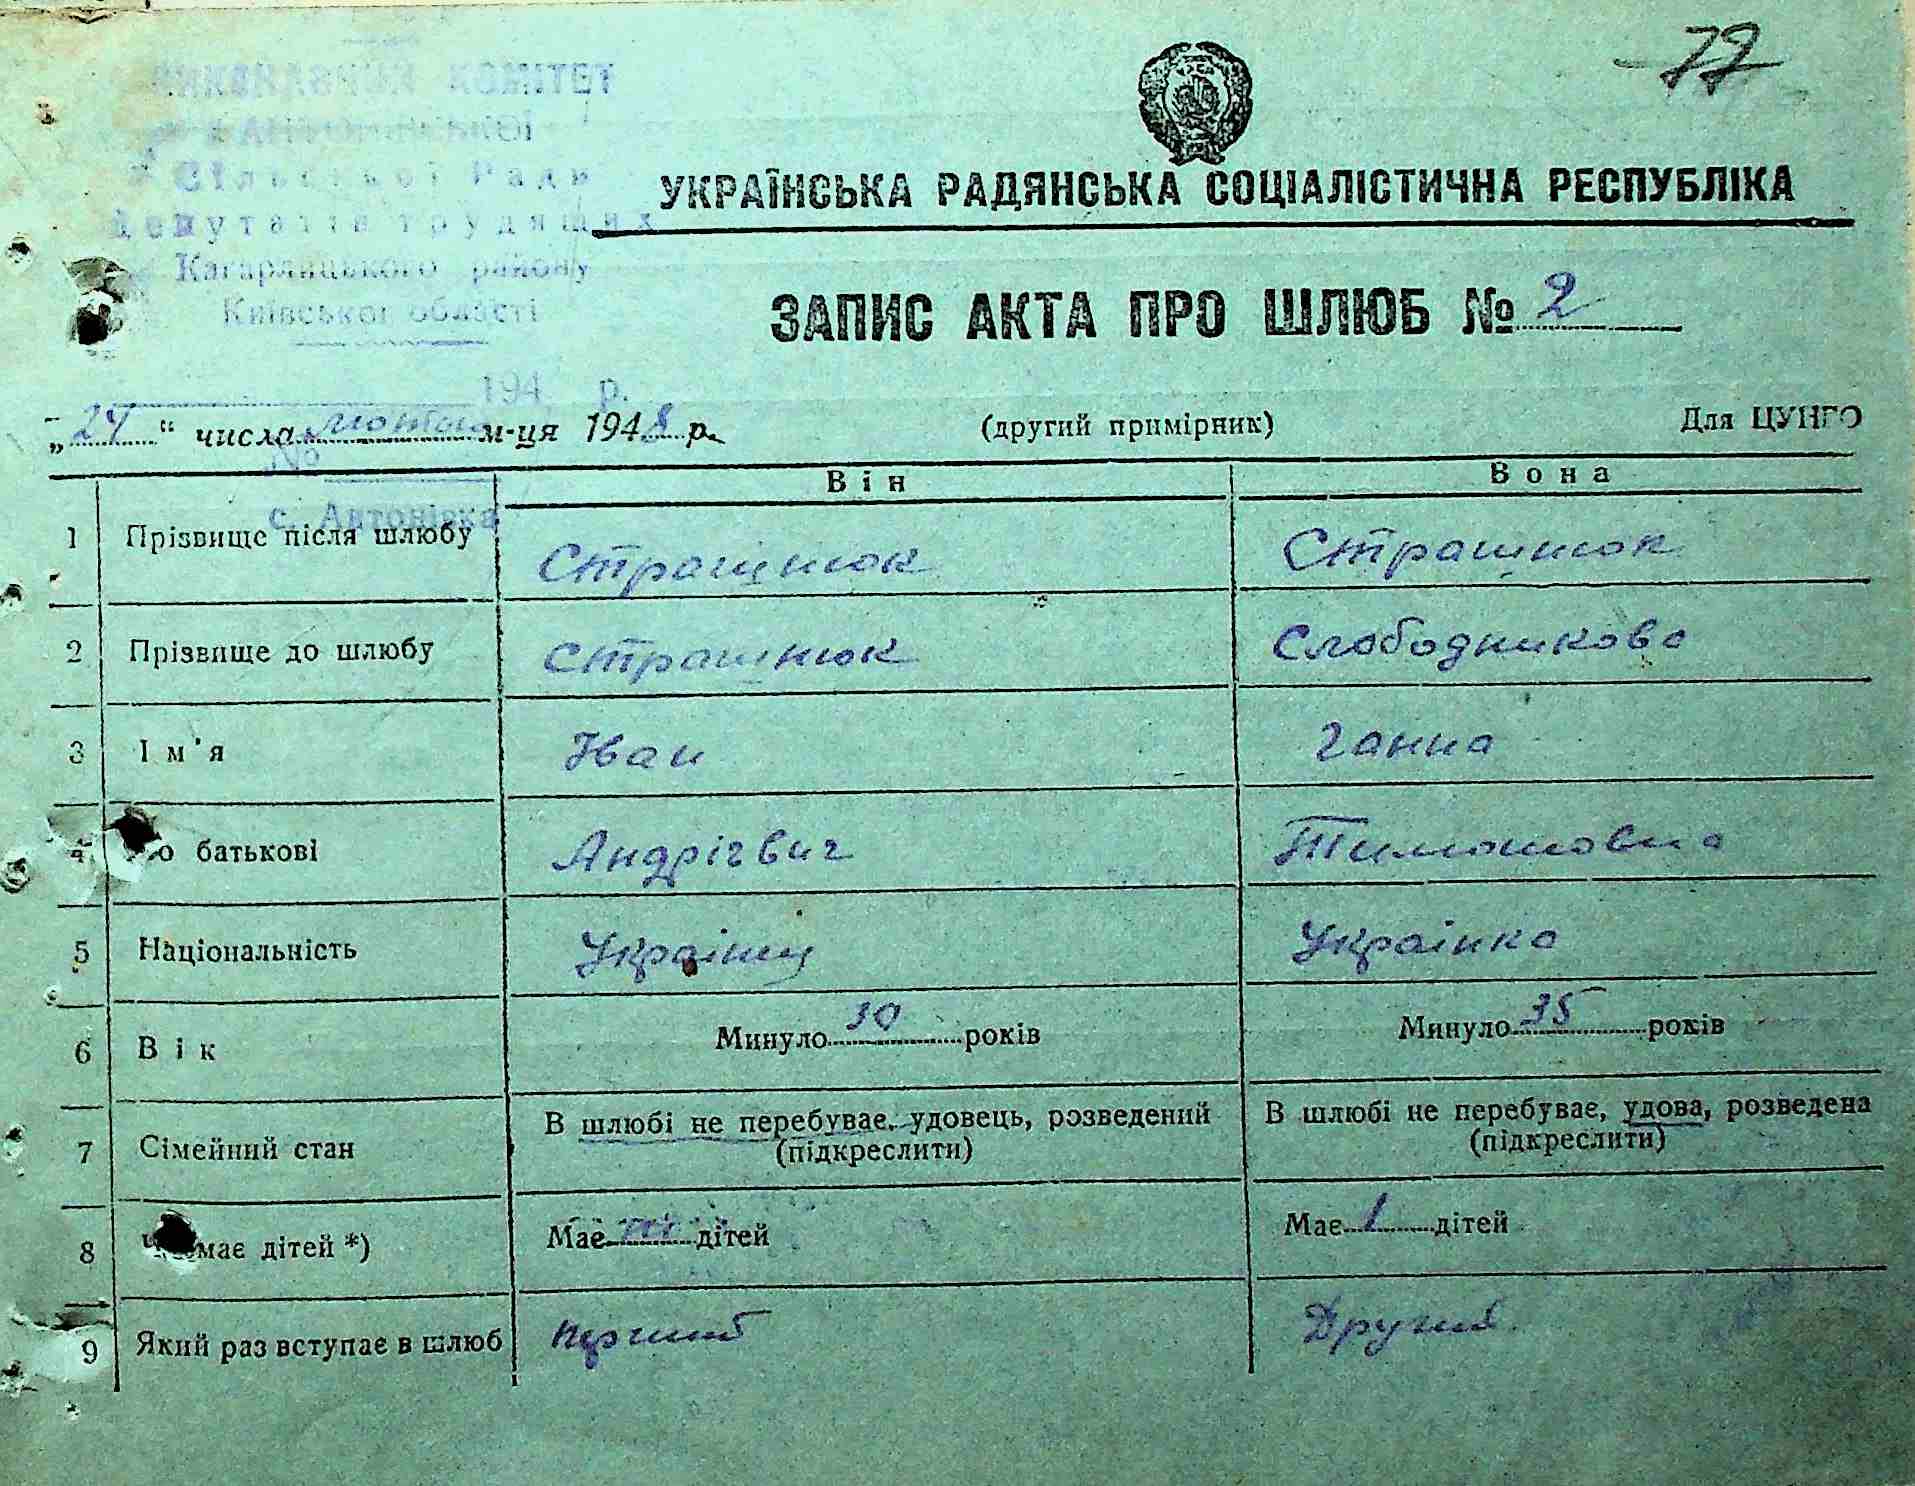 72
ВИКОНАВЧИЙ КОМІТЕТ
Сільської Ради
Депутатів трудящих
Кагарлицького району
Київської області
194 р.
№
с. Антонівка
УКРАЇНСЬКА РАДЯНСЬКА СОЦІАЛІСТИЧНА РЕСПУБЛІКА
ЗАПИС АКТА ПРО ШЛЮБ № 2
„24“ числа лютого м-ця 1948 р.
(другий примірник)
Для ЦУНГО
Він
Вона
1 Прізвище після шлюбу Стращнюк Страшнюк
2 Прізвище до шлюбу Страшнюк Слободникова
3 Ім'я Іван Ганна
4 По батькові Андрієвич Тимошовна
5 Національність Українец Українка
6 Вік Минуло 30 років Минуло 35 років
7 Сімейний стан В шлюбі не перебуває, удовець, розведений (підкреслити) В шлюбі не перебуває, удова, розведена (підкреслити)
8 Чи має дітей *) Має дітей Має 1 дітей
9 Який раз вступає в шлюб перший Другий